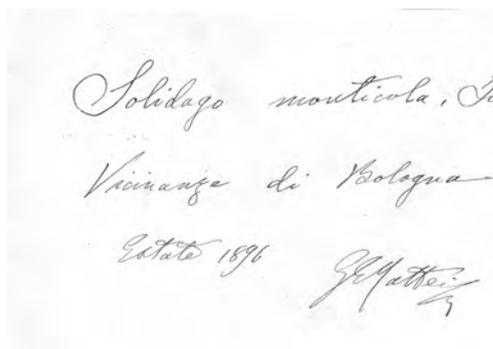 Solidago monticola, J
Vicinanze di Bologna
Estate 1896
GEMattei